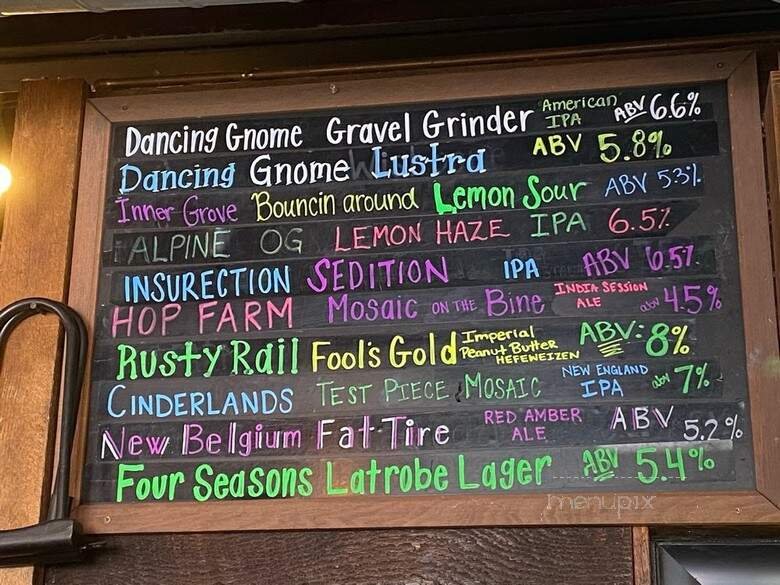 Dancing Gnome Gravel Grinder American IPA ABV 6.6%
Dancing Gnome Lustra ABV 5.8%
Inner Grove Bouncin around Lemon Sour ABV 5.3%
ALPINE OG LEMON HAZE IPA 6.5%
INSURECTION SEDITION IPA ABV 6.5%
HOP FARM Mosaic ON THE Bine INDIA SESSION ALE abv 4.5%
Rusty Rail Fool's Gold Imperial Peanut Butter HEFEWEIZEN ABV: 8%
CINDERLANDS TEST PIECE MOSAIC NEW ENGLAND IPA abv 7%
New Belgium Fat Tire RED AMBER ALE ABV 5.2%
Four Seasons Latrobe Lager ABV 5.4%
menupix